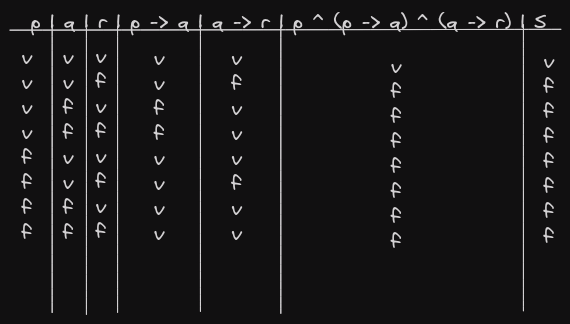 p | q | r | p -> q | q -> r | p ^ (p -> q) ^ (q -> r) | S
v v v v v v v
v v f v f f f
v f v f v f f
v f f f v f f
f v v v v f f
f v f v f f f
f f v v v f f
f f f v v f f